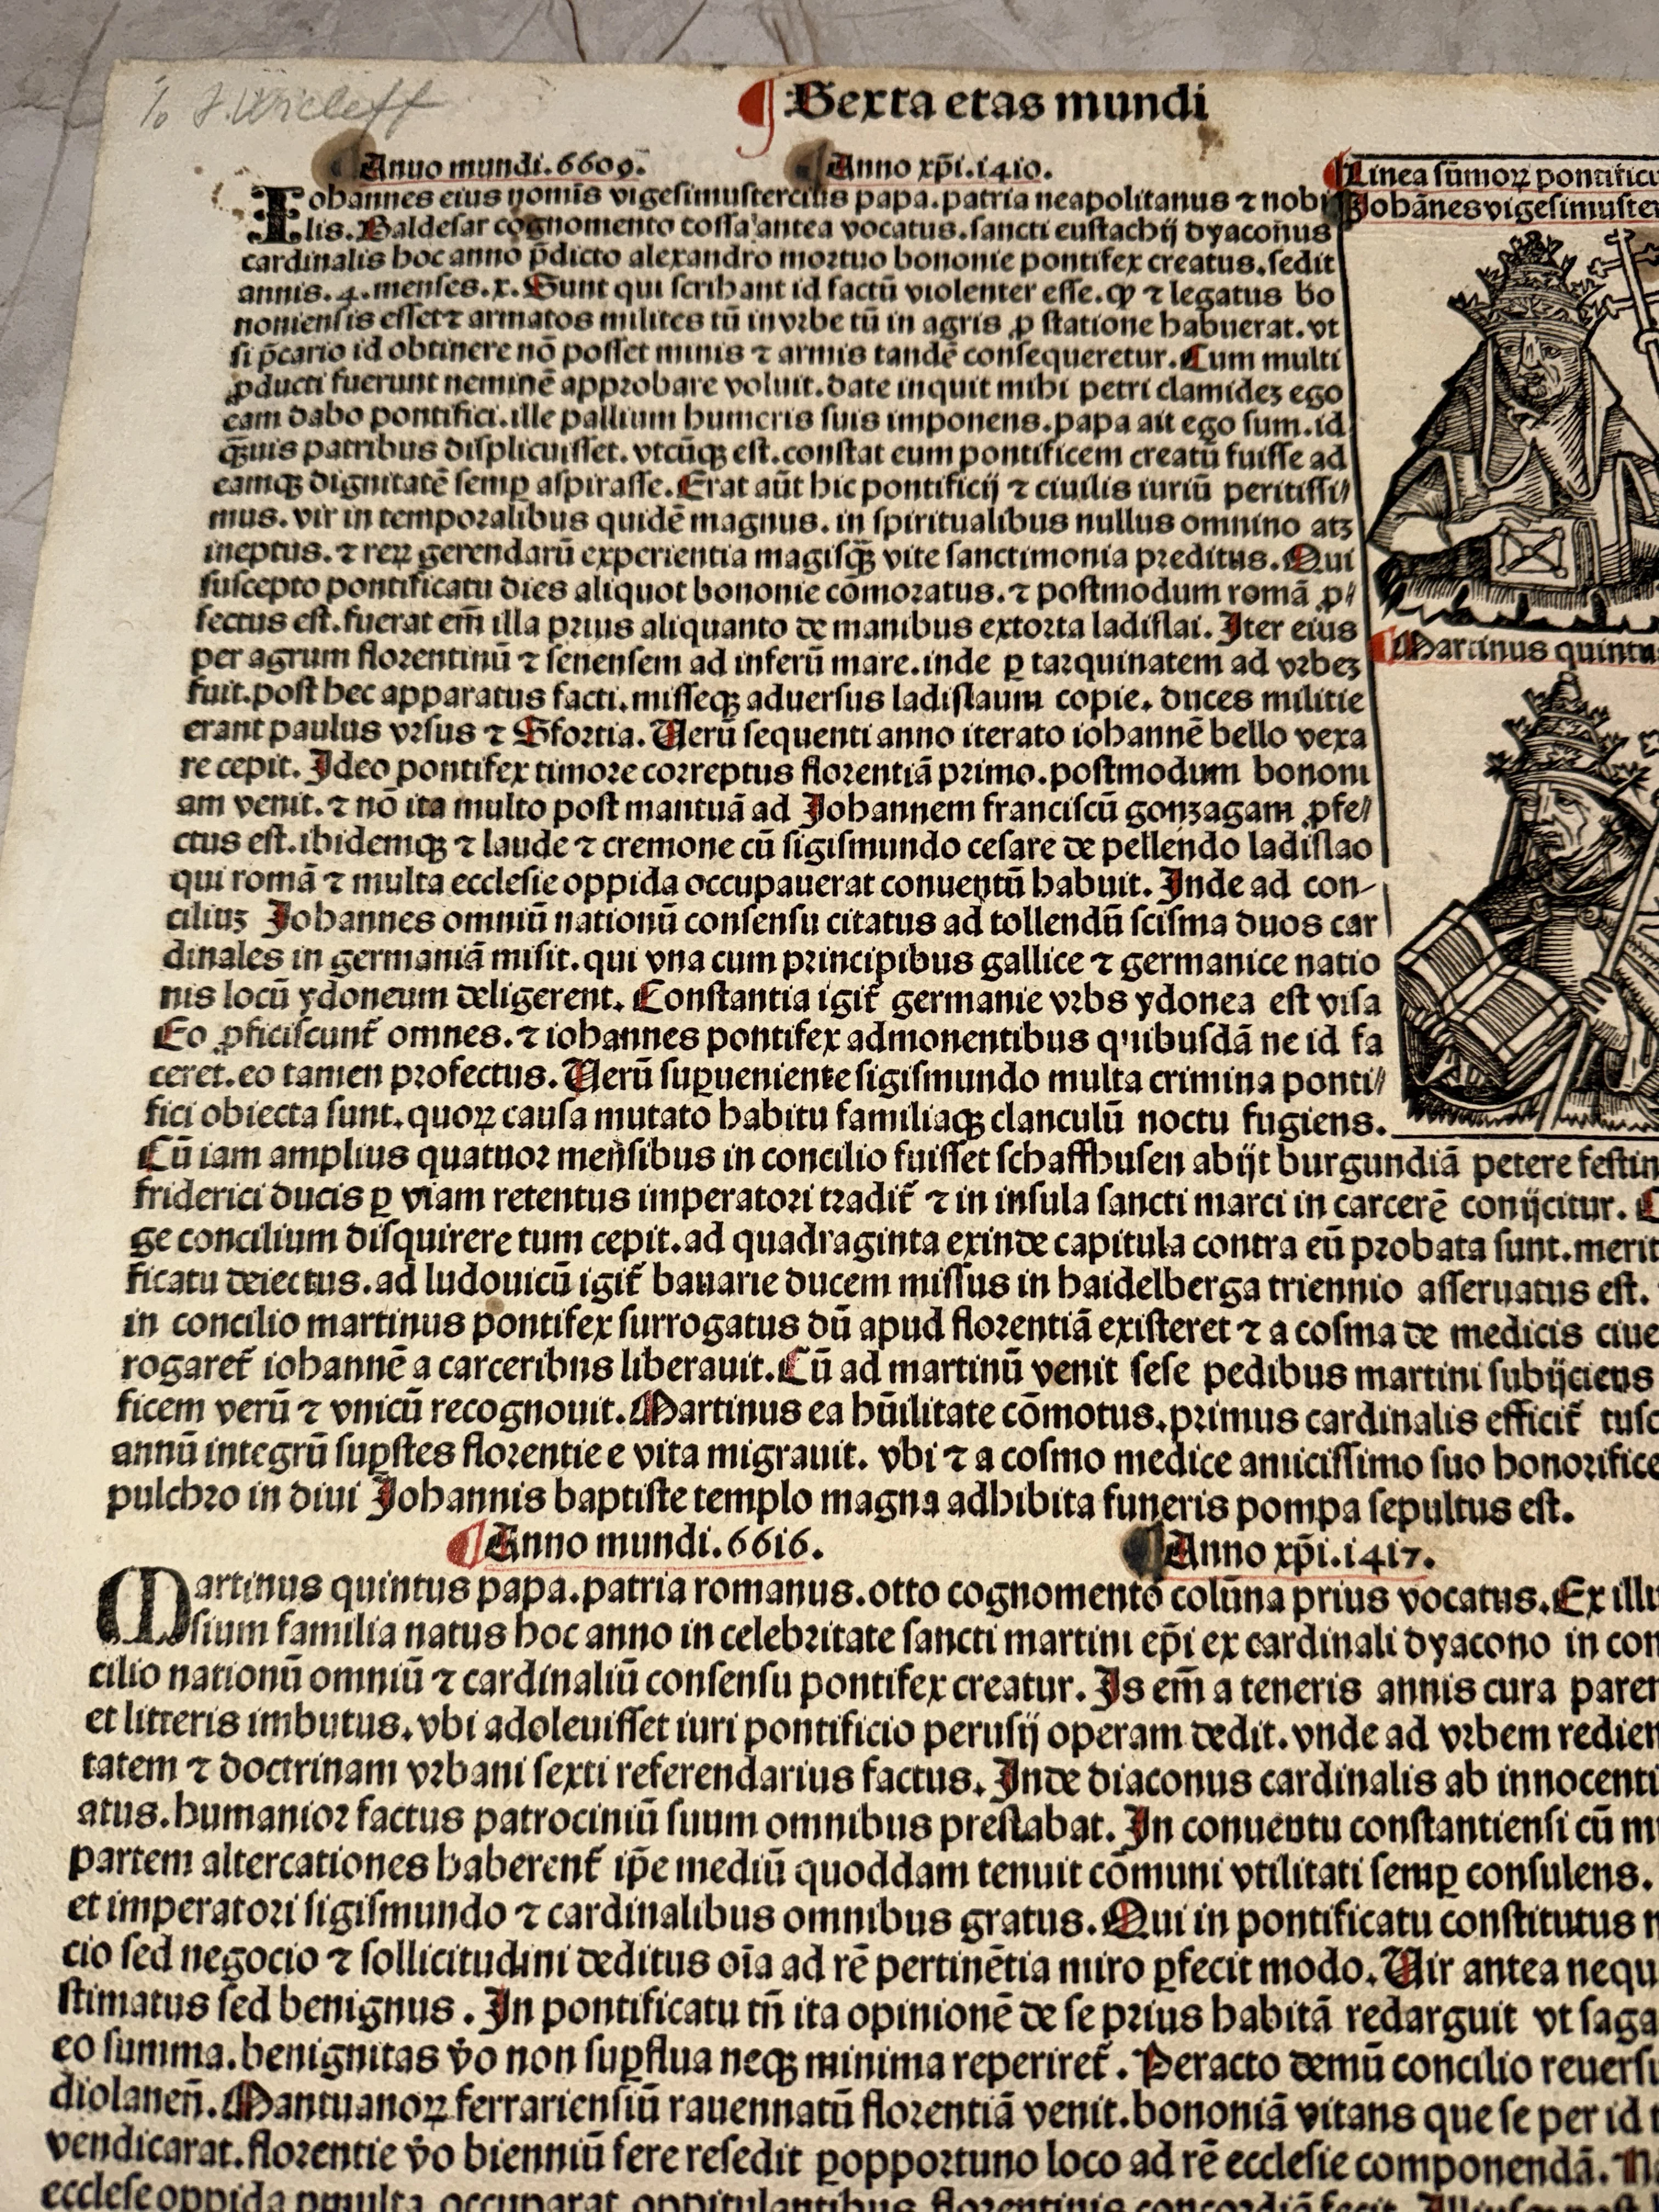 J. Wicleff
Sexta etas mundi
Anno mundi.6609.
Anno xp̄i.1410.
Linea sūmoꝝ pontifici
Johānes vigesimuster
Iohannes eius nomīs vigesimustercius papa.patria neapolitanus ⁊ nobi
lis.Baldesar cognomento cossa antea vocatus.sancti eustachij dyaconus
cardinalis hoc anno p̄dicto alexandro mortuo bononie pontifex creatus.sedit
annis.4.menses.x.Sunt qui scribant id factū violenter esse.ꝙ ⁊ legatus bo
noniensis esset ⁊ armatos milites tū in vrbe tū in agris ꝓ statione habuerat.vt
si p̄cario id obtinere nō posset minis ⁊ armis tandē consequeretur.Cum multi
ꝓducti fuerunt neminē approbare voluit.date inquit mihi petri clamideʒ ego
eam dabo pontifici.ille pallium humeris suis imponens.papa ait ego sum.id
q̄uis patribus displicuisset.vtcūqꝫ est.constat eum pontificem creatū fuisse ad
eamqꝫ dignitatē semꝑ aspirasse.Erat aūt hic pontificij ⁊ ciuilis iuriū peritissi//
mus.vir in temporalibus quidē magnus.in spiritualibus nullus omnino atʒ
ineptus.⁊ reꝝ gerendarū experientia magisq̄ꝫ vite sanctimonia preditus.Qui
suscepto pontificatu dies aliquot bononie cōmoratus.⁊ postmodum romā ꝓ//
fectus est.fuerat em̄ illa prius aliquanto de manibus extorta ladislai.Iter eius
per agrum florentinū ⁊ senensem ad inferū mare.inde ꝑ tarquinatem ad vrbeʒ
fuit.post hec apparatus facti.misseqꝫ aduersus ladislaum copie.duces militie
erant paulus vrsus ⁊ Sfortia.Verū sequenti anno iterato iohannē bello vexa
re cepit.Ideo pontifex timore correptus florentiā primo.postmodum bononi
am venit.⁊ nō ita multo post mantuā ad Johannem franciscū gonzagam ꝓfe//
ctus est.ibidemqꝫ ⁊ laude ⁊ cremone cū sigismundo cesare de pellendo ladislao
qui romā ⁊ multa ecclesie oppida occupauerat conuentū habuit.Inde ad con-
ciliuʒ Johannes omniū nationū consensu citatus ad tollendū scisma duos car
dinales in germaniā misit.qui vna cum principibus gallice ⁊ germanice natio
nis locū ydoneum deligerent.Constantia igit᷑ germanie vrbs ydonea est visa
Eo ꝓficiscunt᷑ omnes.⁊ iohannes pontifex admonentibus quibusdā ne id fa
ceret.eo tamen profectus.Verū suꝑueniente sigismundo multa crimina ponti//
fici obiecta sunt.quoꝝ causa mutato habitu familiaqꝫ clanculū noctu fugiens.
Martinus quintu
Cū iam amplius quatuor mensibus in concilio fuisset schaffhusen abijt burgundiā petere festin
friderici ducis ꝑ viam retentus imperatori tradit᷑ ⁊ in insula sancti marci in carcerē conijcitur.
ge concilium disquirere tum cepit.ad quadraginta exinde capitula contra eū probata sunt.merit
ficatu deiectus.ad ludouicū igit᷑ bauarie ducem missus in haidelberga triennio asseruatus est.
in concilio martinus pontifex surrogatus dū apud florentiā existeret ⁊ a cosma de medicis ciue
rogaret᷑ iohannē a carceribus liberauit.Cū ad martinū venit sese pedibus martini subijciens
ficem verū ⁊ vnicū recognouit.Martinus ea hūilitate cōmotus.primus cardinalis efficit᷑ tusc
annū integrū suꝑstes florentie e vita migrauit.vbi ⁊ a cosmo medice amicissimo suo honorifice
pulchro in diui Johannis baptiste templo magna adhibita funeris pompa sepultus est.
Anno mundi.6616.
Anno xp̄i.1417.
Martinus quintus papa.patria romanus.otto cognomento colūna prius vocatus.Ex illu
sium familia natus hoc anno in celebritate sancti martini ep̄i ex cardinali dyacono in con
cilio nationū omniū ⁊ cardinaliū consensu pontifex creatur.Is em̄ a teneris annis cura paren
et litteris imbutus.vbi adoleuisset iuri pontificio perusij operam dedit.vnde ad vrbem redien
tatem ⁊ doctrinam vrbani sexti referendarius factus.Inde diaconus cardinalis ab innocenti
atus.humanior factus patrociniū suum omnibus prestabat.In conuentu constantiensi cū m
partem altercationes haberent᷑ ip̄e mediū quoddam tenuit cōmuni vtilitati semꝑ consulens.
et imperatori sigismundo ⁊ cardinalibus omnibus gratus.Qui in pontificatu constitutus
cio sed negocio ⁊ sollicitudini deditus oīa ad rē pertinētia miro ꝑfecit modo.Vir antea nequ
stimatus sed benignus.In pontificatu tn̄ ita opinionē de se prius habitā redarguit vt saga
eo summa.benignitas v̄o non suꝑflua neqꝫ minima reperiret᷑.Peracto demū concilio reuersu
diolanen̄.Mantuanoꝝ ferrariensiū rauennatū florentiā venit.bononiā vitans que se per id
vendicarat.florentie v̄o bienniū fere resedit ꝑopportuno loco ad rē ecclesie componendā.
ecclese oppida occuparat opitulantibus florentinis concordiā fecit.